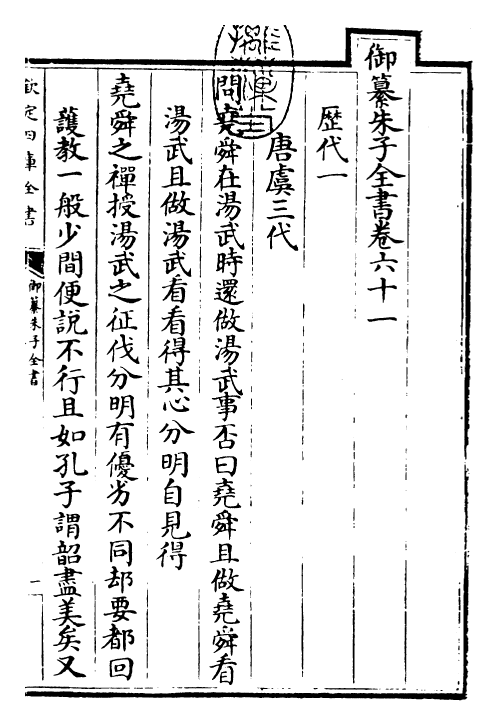 御纂朱子全書卷六十一
歴代一
唐虞三代
問堯舜在湯武時還做湯武事否曰堯舜且做堯舜看
湯武且做湯武看看得其心分明自見得
堯舜之禪授湯武之征伐分明有優劣不同却要都回
護教一般少間便說不行且如孔子謂韶盡美矣又
欽定四庫全書
御纂朱子全書
一